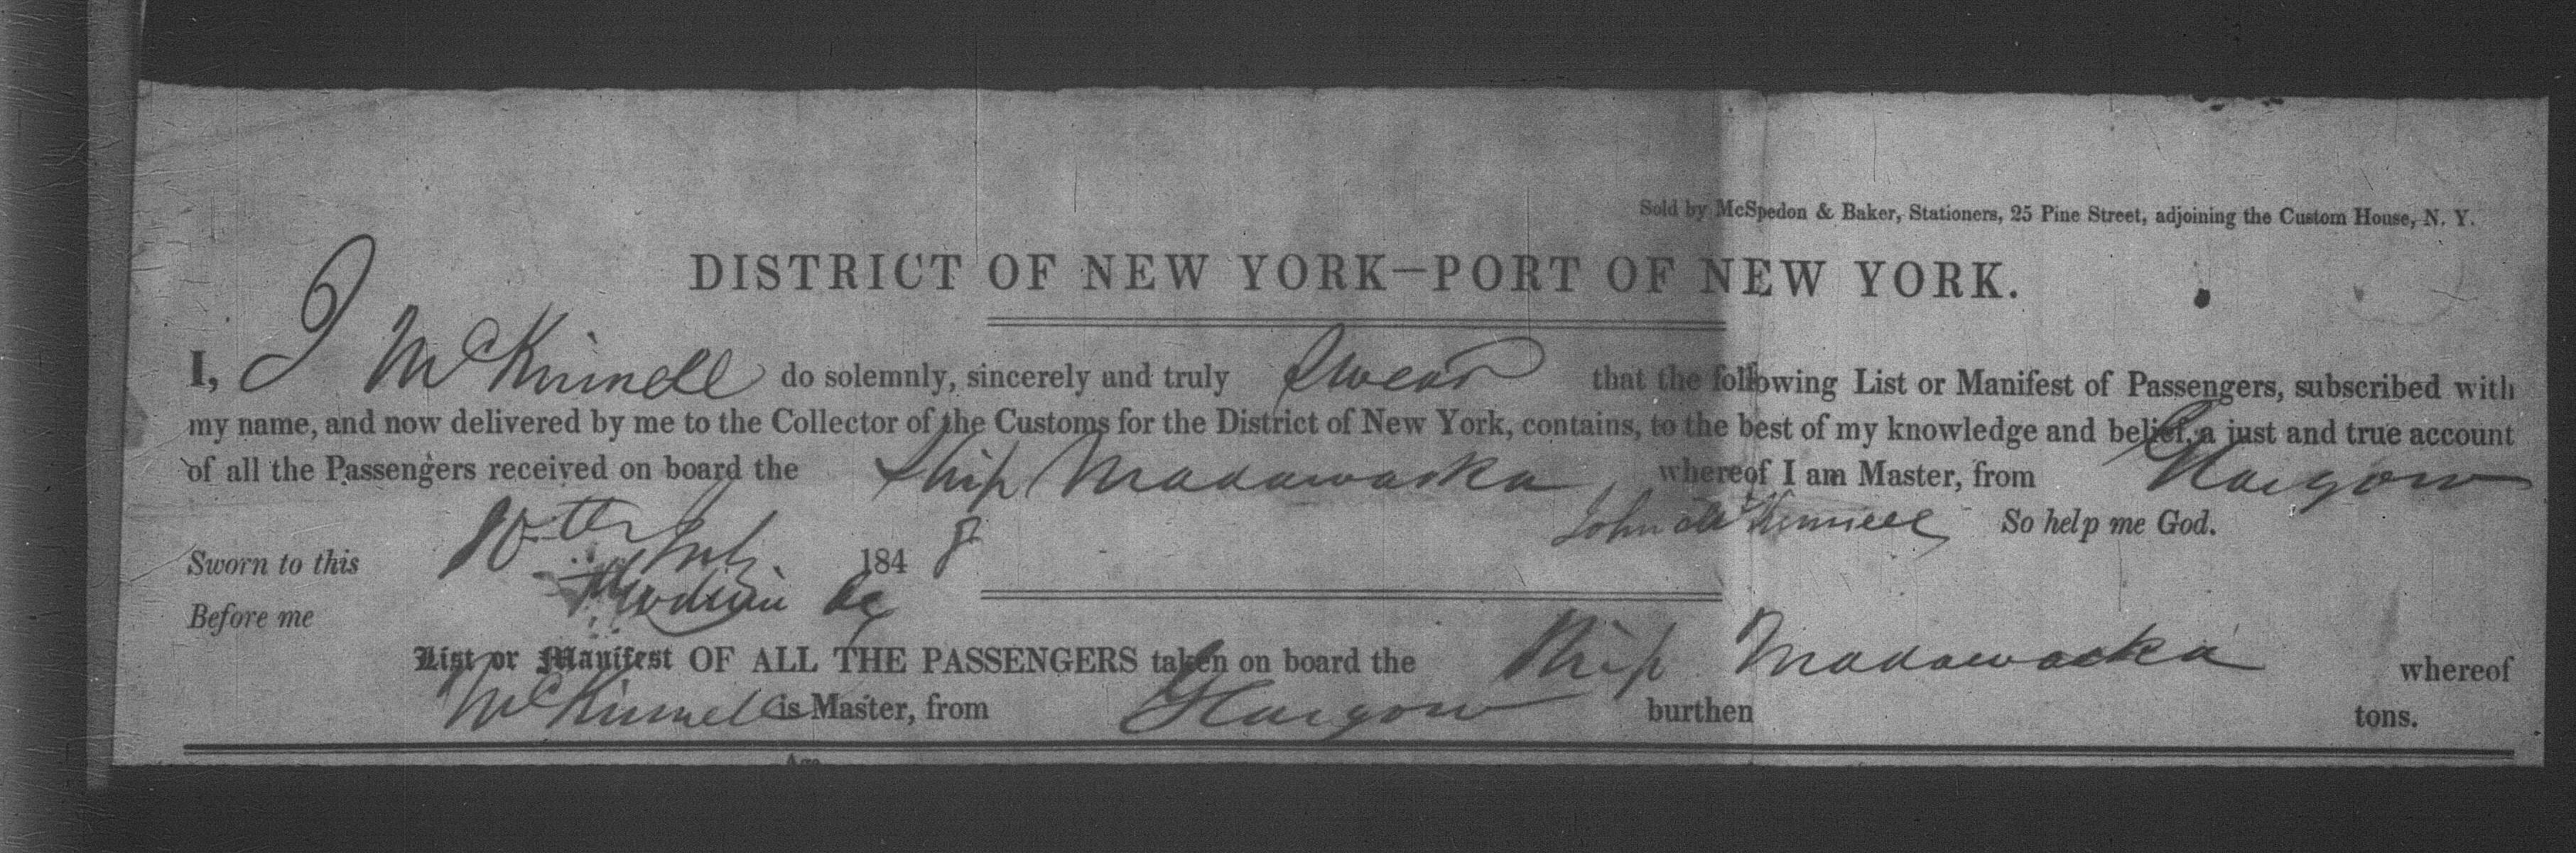 Sold by McSpedon & Baker, Stationers, 25 Pine Street, adjoining the Custom House, N. Y.
DISTRICT OF NEW YORK—PORT OF NEW YORK.
I, J McKinnell do solemnly, sincerely and truly Swear that the following List or Manifest of Passengers, subscribed with
my name, and now delivered by me to the Collector of the Customs for the District of New York, contains, to the best of my knowledge and belief, a just and true account
of all the Passengers received on board the Ship Madawaska whereof I am Master, from Glasgow
John McKinnell So help me God.
Sworn to this 10th July 1848
Before me
List or Manifest OF ALL THE PASSENGERS taken on board the Ship Madawaska whereof
McKinnell is Master, from Glasgow burthen tons.
Age